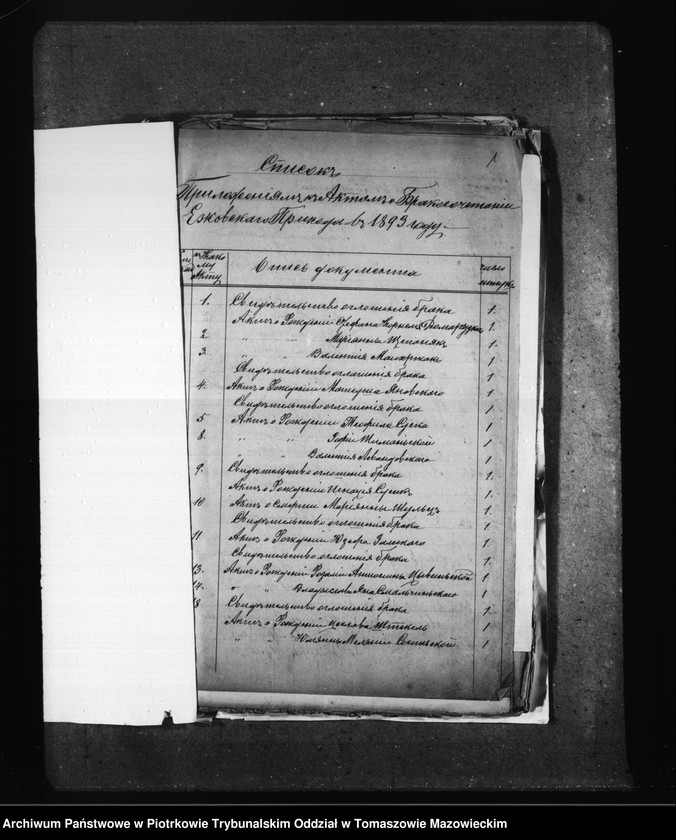 1
Списокъ
Приложеніямъ къ Актамъ о Бракосочетаніи
Езковскаго Прихода въ 1893 году.
къ како
му
Акту
Опись документа
число
штукъ
1. Свидѣтельство оглошенія брака 1.
Актъ о Рожденіи Стефана Корнеля 1.
2 " " Маріанны 1
3. " " Валентія 1
Свидѣтельство оглошенія брака 1
4. Актъ о Рожденіи Матеуша Яновскаго 1
Свидѣтельство оглошенія брака 1
5 Актъ о Рожденіи Теофила 1
8. " " Зофіи Шиманьской 1
" " Валентія Левандовскаго 1
9. Свидѣтельство оглошенія брака 1
Актъ о Рожденіи Игнація 1.
10 Актъ о Смерти Маріанны Шульцъ 1.
Свидѣтельство оглошенія брака 1.
11 Актъ о Рожденіи Юзефа 1.
Свидѣтельство оглошенія брака 1
13. Актъ о Рожденіи Розаліи Антонины 1
14. " " Владыслава Яна 1
18 Свидѣтельство оглошенія брака 1.
Актъ о Рожденіи 1
" " Юліянны Меляніи 1
Archiwum Państwowe w Piotrkowie Trybunalskim Oddział w Tomaszowie Mazowieckim